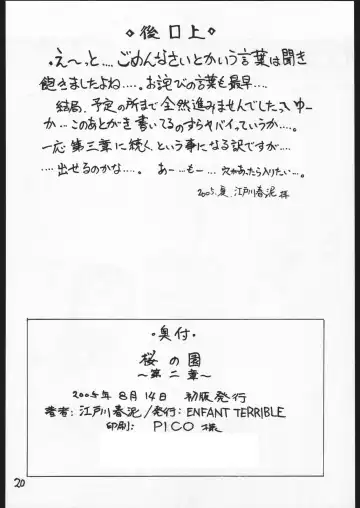 ◇後口上◇
・え〜っと....ごめんなさいとかいう言葉は聞き
飽きましたよね.....。お詫びの言葉も最早....
結局、予定の所まで全然進みませんでした。っていゆー
か...このあとがき書いてるのすらヤバイっていうか....。
一応第三章に続く、という事になる訳ですが....
....出せるのかな....。あー...もー...穴があったら入りたい...。
2005.夏.江戸川春泥 拝
・奥付・
桜の園
〜第二章〜
2005年8月14日 初版発行
著者:江戸川春泥/発行:ENFANT TERRIBLE
印刷: PICO様
20